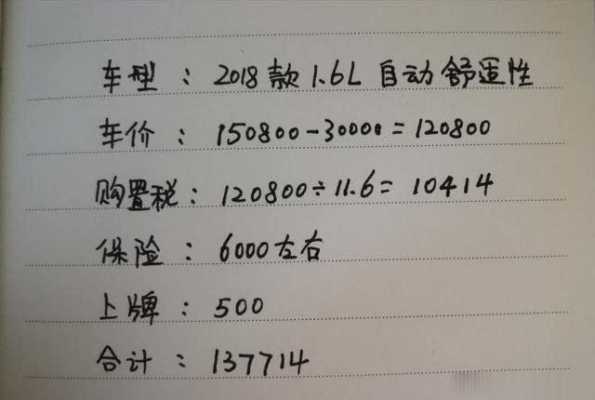 车型：2018款1.6L自动舒适性
车价：150800-30000=120800
购置税：120800÷11.6=10414
保险：6000左右
上牌：500
合计：137714